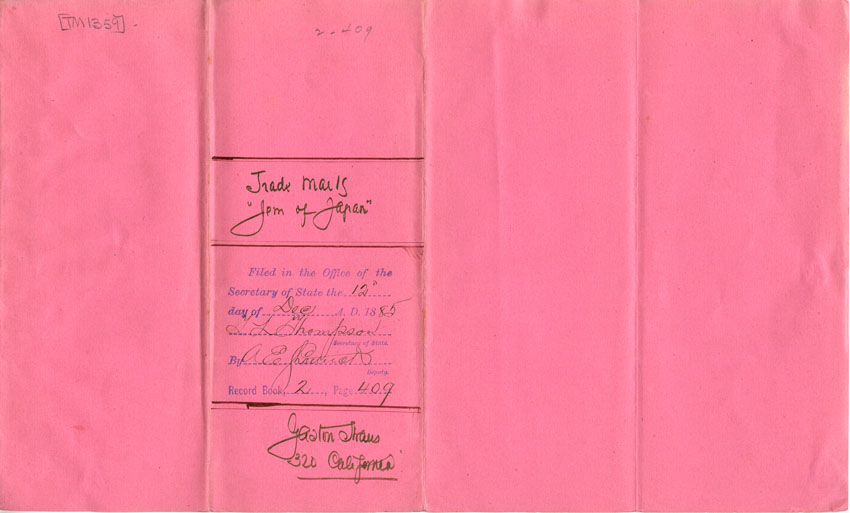 [TM1359]
2-409
Trade Mark
"Jem of Japan"
Filed in the Office of the
Secretary of State the 12"
day of Dec A. D. 1885
T L Thompson
Secretary of State.
By A E
Deputy.
Record Book, 2, Page 409
Gaston Straus
320 California